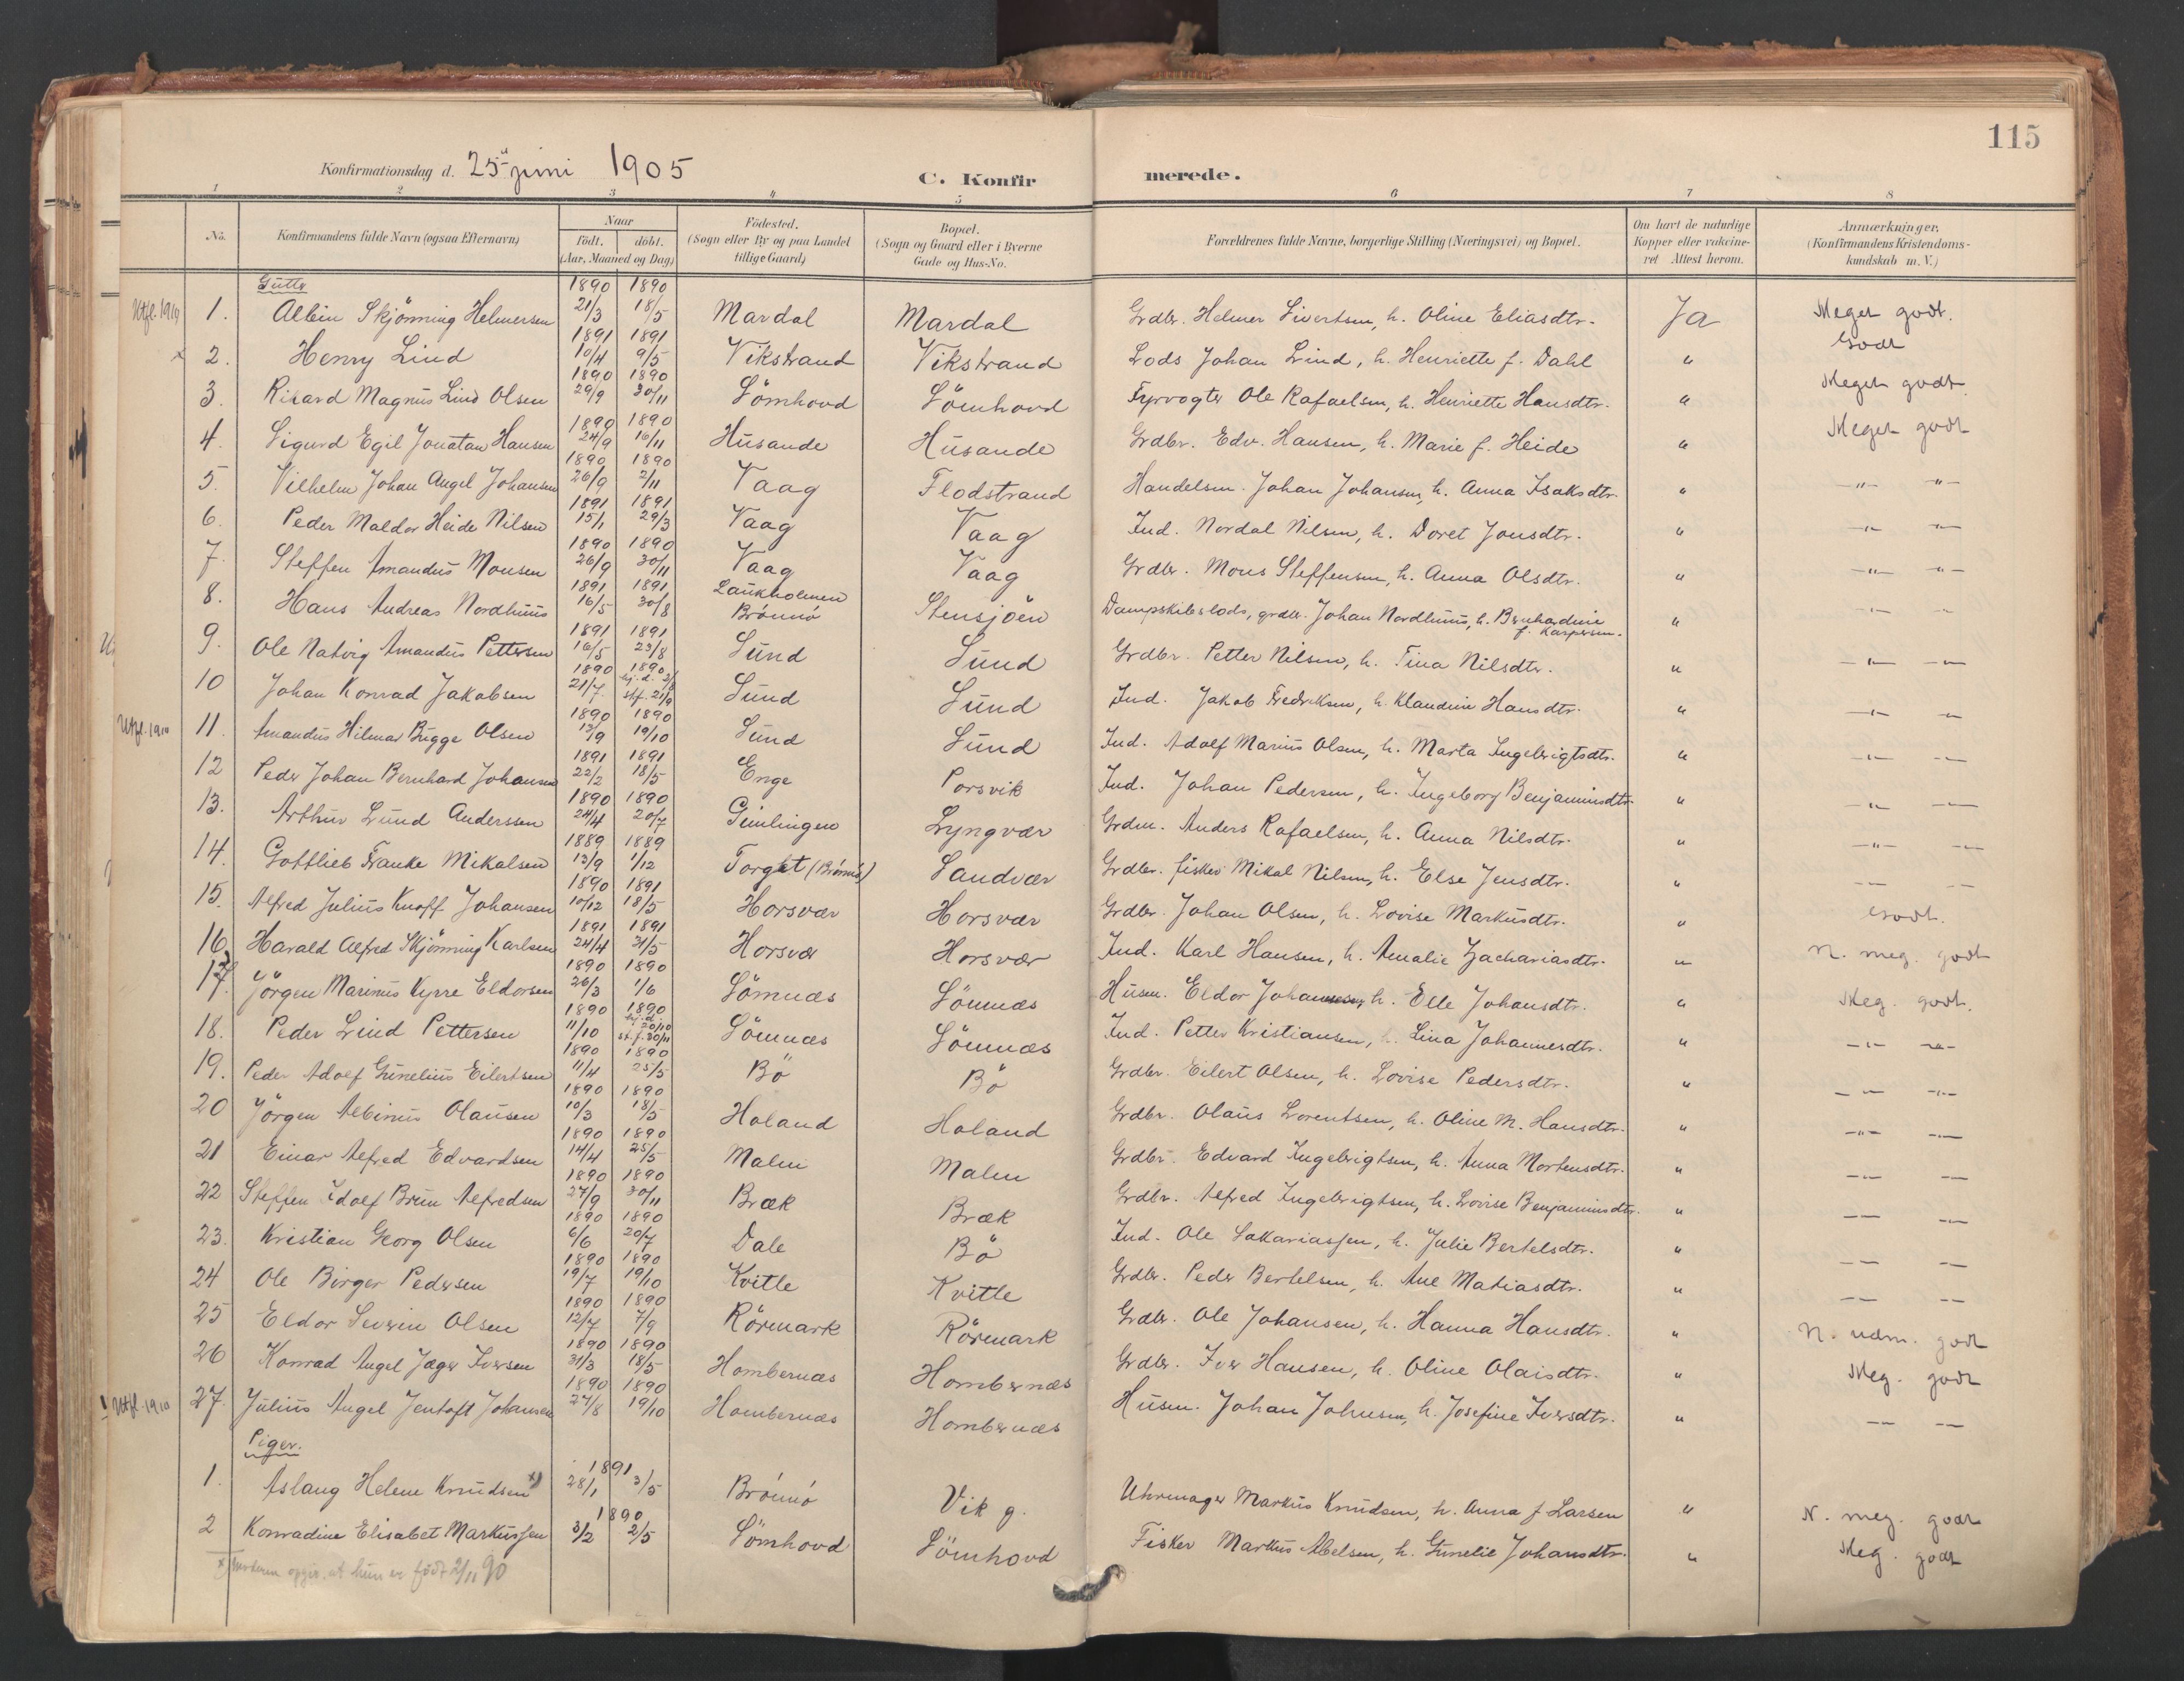 115
Konfirmationsdag d. 25 juni 1905
C. Konfirmerede.
1 2 3 4 5 6 7 8
No. Konfirmandens fulde Navn (ogsaa Efternavn) Naar født. døbt. (Aar, Maaned og Dag) Födested. (Sogn eller By og paa Landet tillige Gaard) Bopæl. (Sogn og Gaard eller i Byerne Gade og Hus-No. Forældrenes fulde Navne, borgerlige Stilling (Næringsvei) og Bopæl. Om havt de naturlige Kopper eller vakcineret. Attest herom. Anmærkninger, (Konfirmandens Kristendomskundskab m. V.)
Gutter
Utfl. 1910 1. Albin Skjönning Helmersen 1890 21/3 1890 18/5 Mardal Mardal Grdbr. Helmer Sivertsen, h. Oline Eliasdtr. Ja Meget godt.
x 2. Henry Lind 1891 10/4 1891 9/5 Vikstrand Vikstrand Lods Johan Lind, h. Henriette f. Dahl " Godt
3. Rikard Magnus Lind Olsen 1890 29/9 1890 30/11 Sömhovd Sömhovd Fyrvogter Ole Rafaelsen, h. Henriette Hansdtr. " Meget godt
4. Sigurd Egil Jonatan Hansen 1890 24/9 1890 16/11 Husande Husande Grdbr. Edv. Hansen, h. Marie f. Heide " Meget godt
5. Vilhelm Johan Angel Johansen 1890 26/9 1890 2/11 Vaag Flodstrand Handelsm. Johan Johansen, h. Anna Isaksdtr. " —"— —"—
6. Peder Maldor Heide Nilsen 1891 15/1 1891 29/3 Vaag Vaag Ind. Nordal Nilsen, h. Doret Jonsdtr. " —"— —"—
7. Steffen Amandus Monsen 1890 26/9 1890 30/11 Vaag Vaag Grdbr. Mons Steffensen, h. Anna Olsdtr. " —"— —"—
8. Hans Andreas Nordhuus 1891 16/5 1891 30/8 Laukholmen Brönnö Stensjöen Dampskibslods, grdbr. Johan Nordhuus, h. Bernhardine f. Kaspersen. " —"— —"—
9. Ole Natvig Amandus Pettersen 1891 16/5 1891 23/8 Sund Sund Grdbr. Petter Nilsen, h. Tina Nilsdtr. " —"— —"—
10 Johan Konrad Jakobsen 1890 21/7 1890 hj.d. 3/8 stf. 21/9 Sund Sund Ind. Jakob Fredriksen, h. Klaudine Hansdtr. " —"— —"—
Utfl. 1910 11. Amandus Hilmar Brygge Olsen 1890 13/9 1890 19/10 Sund Sund Ind. Adolf Marius Olsen, h. Marta Ingebrigtsdtr. " —"— —"—
12 Peder Johan Bernhard Johansen 1891 22/2 1891 18/5 Enge Porsvik Ind. Johan Pedersen, h. Ingeborg Benjaminsdtr. " —"— —"—
13. Arthur Lund Anderssen 1890 24/4 1890 20/7 Gimlingen Lyngvær Grdm. Anders Rafaelsen, h. Anna Nilsdtr. " —"— —"—
14. Gottlieb Franke Mikalsen 1889 13/9 1889 1/12 Torget (Brönnö) Sandvær Grdbr. fisker Mikal Nilsen, h. Else Jensdtr. " — —
15. Alfred Julius Knoff Johansen 1890 10/12 1891 18/5 Horsvær Horsvær Grdbr. Johan Olsen, h. Lovise Markusdtr. " Godt.
16. Harald Alfred Skjönning Karlsen 1891 24/4 1891 31/5 Horsvær Horsvær Ind. Karl Hansen, h. Amalie Zachariasdtr. " N. meg. godt
17. Jörgen Marinus Kyrre Eldorsen 1890 26/3 1890 1/6 Sömnæs Sömnæs Husm. Eldor Johansen, h. Elle Johansdtr. " Meg. godt.
18. Peder Lind Pettersen 1890 11/10 1890 hj.d. 20/10 st.f. 30/11 Sömnæs Sömnæs Ind. Petter Kristiansen, h. Lina Johannesdtr. " —"— —"—
19. Peder Adolf Gunelius Eilertsen 1890 11/4 1890 25/5 Bö Bö Grdbr. Eilert Olsen, h. Lovise Pedersdtr. " — —
20 Jörgen Albinus Olausen 1890 10/3 1890 18/5 Holand Holand Grdbr. Olaus Lorentsen, h. Oline M. Hansdtr. " —"— —
21 Einar Alfred Edvardsen 1890 14/4 1890 25/5 Malm Malm Grdbr. Edvard Ingebrigtsen, h. Anna Mortensdtr. " — —
22 Steffen Adolf Brun Alfredsen 1890 27/9 1890 30/11 Bræk Bræk Grdbr. Alfred Ingebrigtsen, h. Lovise Benjaminsdtr. " — —
23. Kristian Georg Olsen 1890 6/6 1890 20/7 Dale Bö Ind. Ole Sakariassen, h. Julie Bertelsdtr. " — —
24 Ole Birger Pedersen 1890 19/7 1890 19/10 Kvitle Kvitle Grdbr. Peder Bertelsen, h. Ane Matiasdtr. " — —
25 Eldor Severin Olsen 1890 12/7 1890 7/9 Rörmark Rörmark Grdbr. Ole Johansen, h. Hanna Hansdtr. " N. udm. godt
26 Konrad Angel Jæger Iversen 1890 31/3 1890 18/5 Hombernæs Hombernæs Grdbr. Iver Hansen, h. Oline Olaisdtr. " Meg. godt
Utfl. 1910 27. Julius Angel Jentoft Johansen 1890 27/8 1890 19/10 Hombernæs Hombernæs Husm. Johan Johnsen, h. Josefine Iversdtr. " — —
Piger.
1. Aslaug Helene Knudsen x) 1891 28/1 3/5 Brönnö Vik g. Uhrmager Markus Knudsen, h. Anna f Larsen " N. meg. godt
2 Konradine Elisabet Markussen 1890 3/2 2/5 Sömhovd Sömhovd Fisker Markus Abelsen, h. Gunelie Johansdtr. " Meg. godt
x) Moderen opgir. at hun er födt 2/11 90